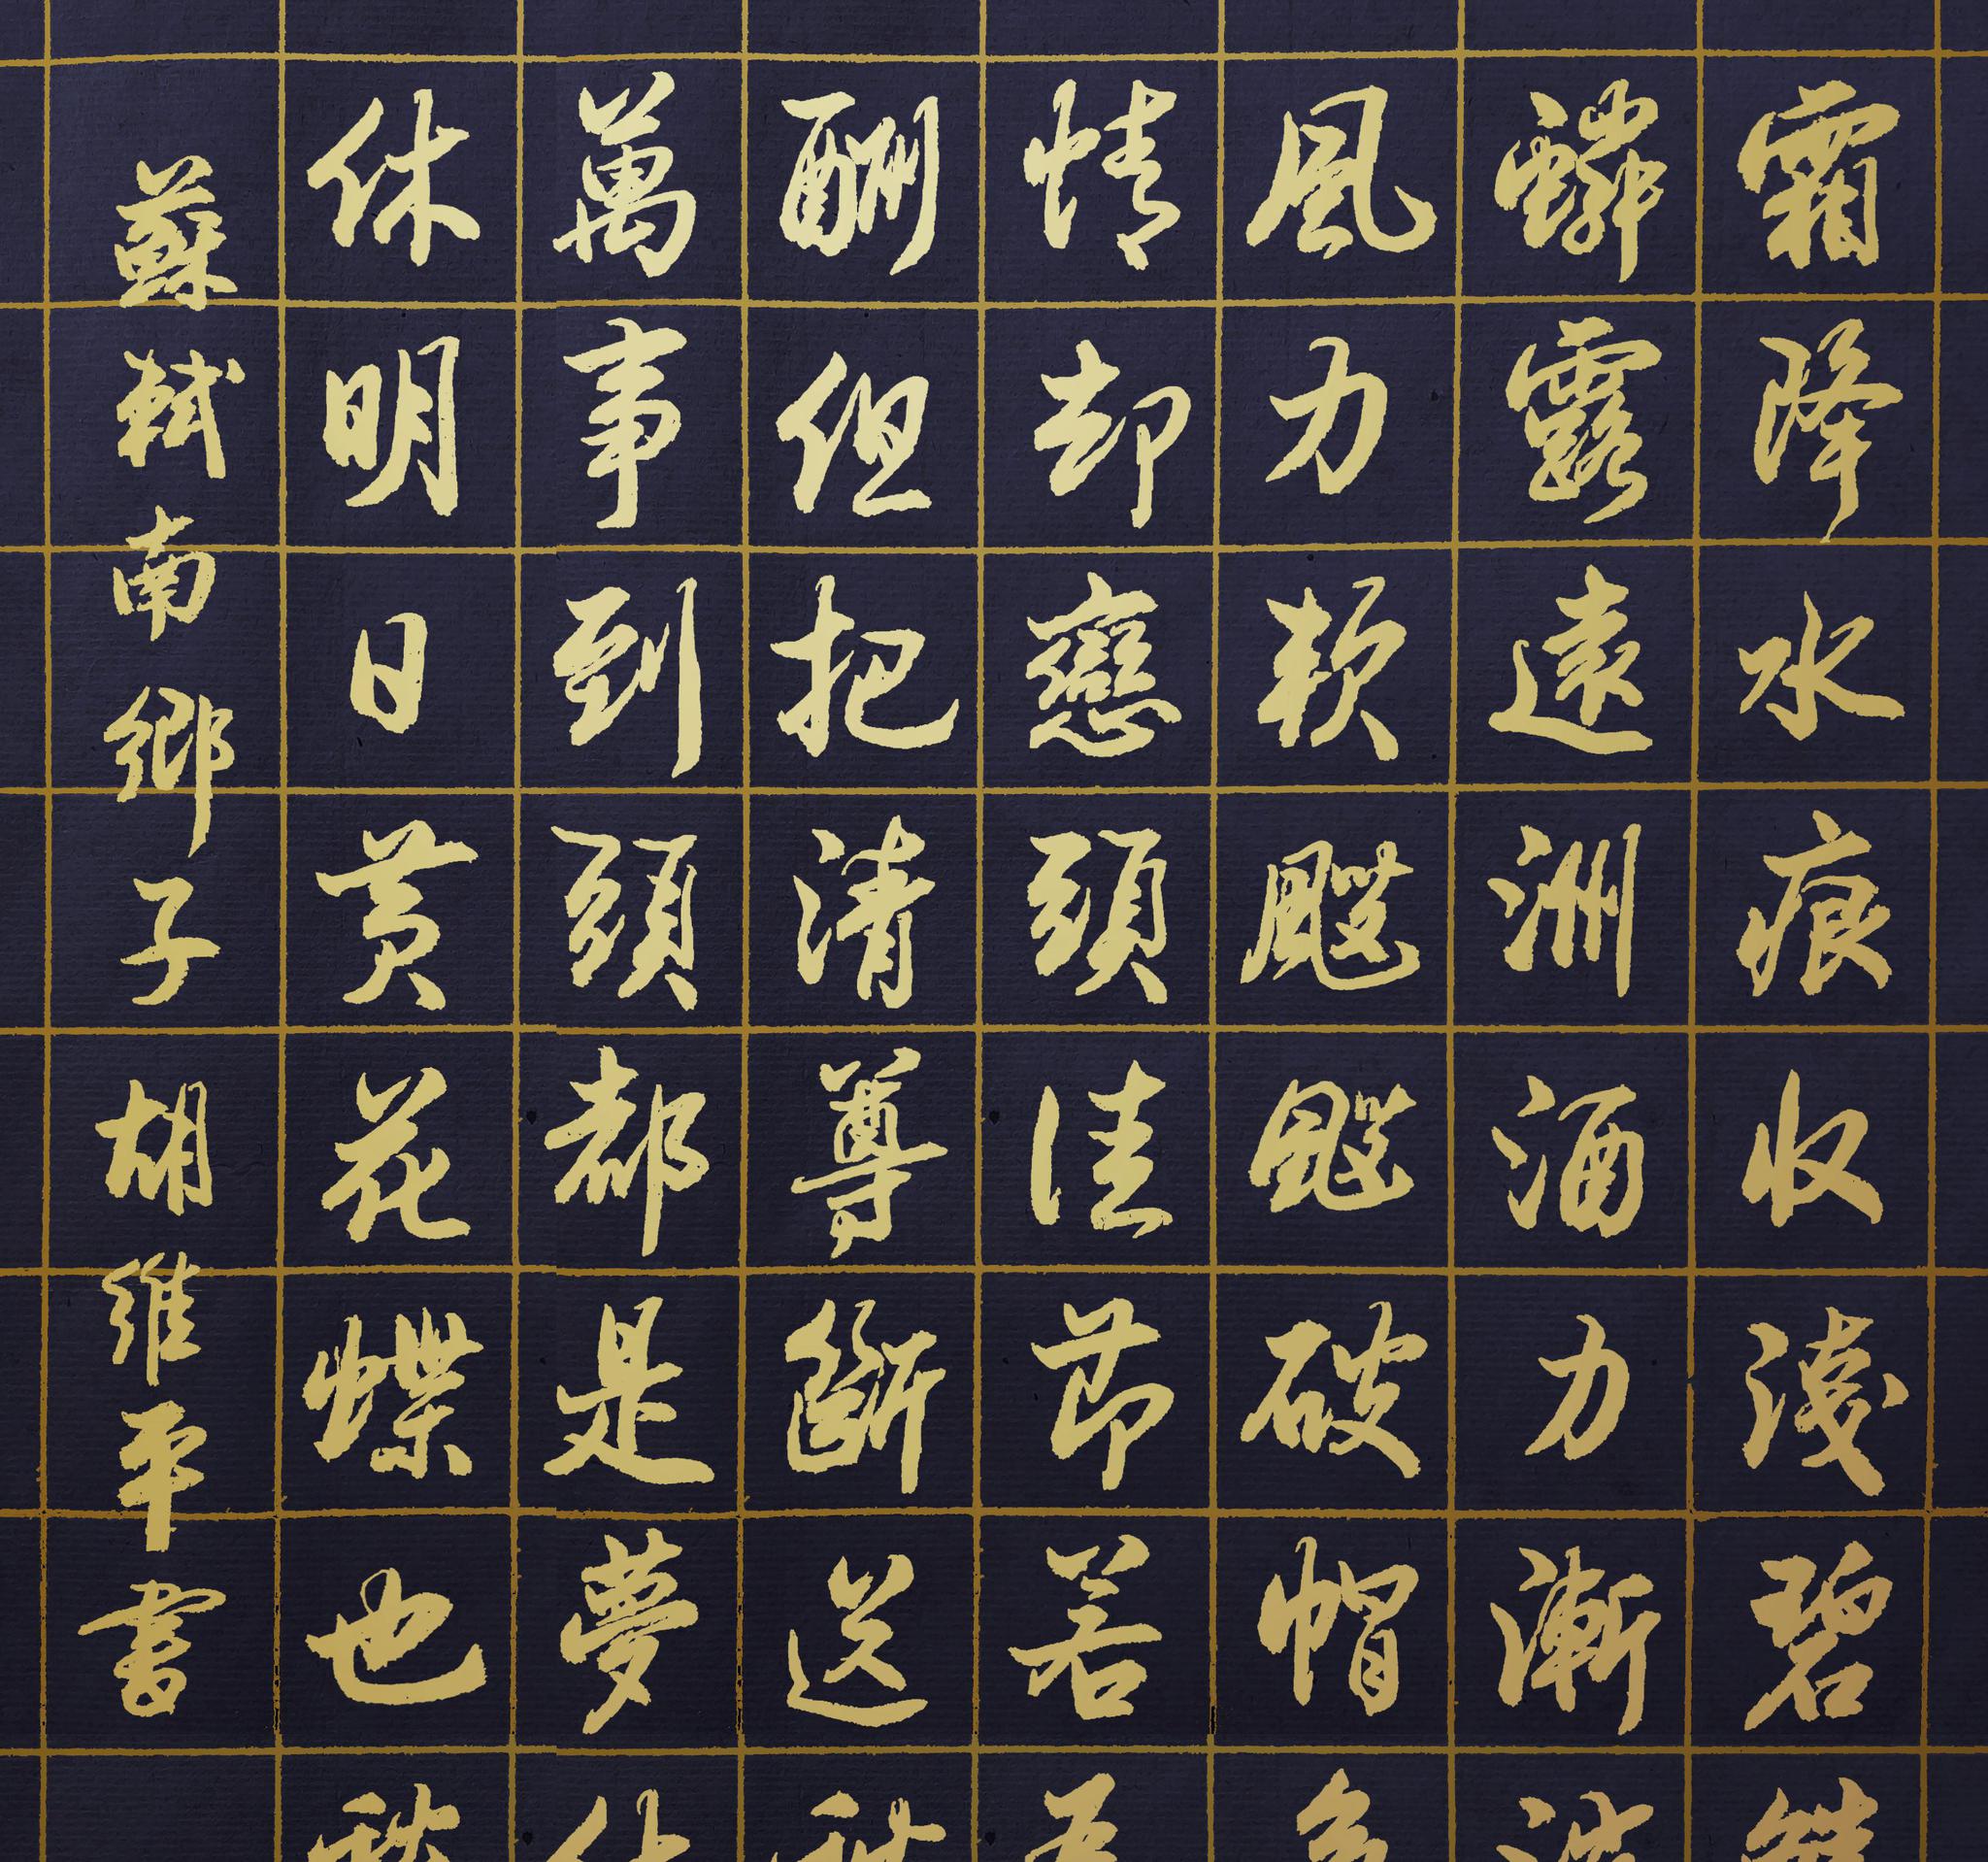 霜降水痕收淺碧
鱗露遠洲酒力漸
風力軟颼颼破帽
情却戀頭佳節若
酬但把清尊斷送
萬事到頭都是夢
休明日黄花蝶也
蘇軾南鄉子 胡維平書